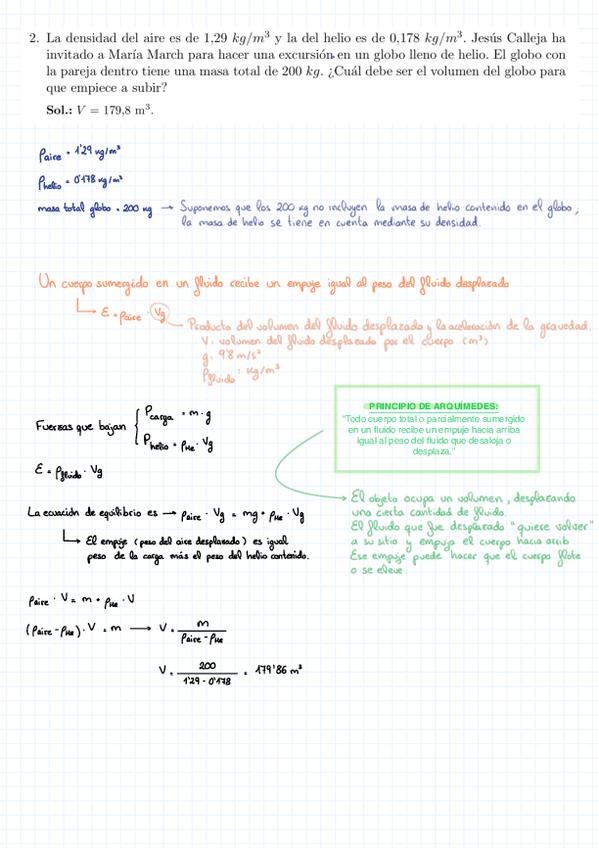 2. La densidad del aire es de 1,29 kg/m³ y la del helio es de 0,178 kg/m³. Jesús Calleja ha
invitado a María March para hacer una excursión en un globo lleno de helio. El globo con
la pareja dentro tiene una masa total de 200 kg. ¿Cuál debe ser el volumen del globo para
que empiece a subir?
Sol.: V = 179,8 m³.
ρaire = 1'29 kg/m³
ρhelio = 0'178 kg/m³
masa total globo = 200 kg → Suponemos que los 200 kg no incluyen la masa de helio contenido en el globo;
la masa de helio se tiene en cuenta mediante su densidad.
Un cuerpo sumergido en un fluido recibe un empuje igual al peso del fluido desplazado
↳ E = ρaire · Vg → Producto del volumen del fluido desplazado y la aceleración de la gravedad.
V: volumen del fluido desplazado por el cuerpo (m³)
g: 9'8 m/s²
ρfluido: kg/m³
Fuerzas que bajan { Pcarga = m · g
Phelio = ρHe · Vg
E = ρfluido · Vg
PRINCIPIO DE ARQUÍMEDES:
"Todo cuerpo total o parcialmente sumergido
en un fluido recibe un empuje hacia arriba
igual al peso del fluido que desaloja o
desplaza."
La ecuación de equilibrio es → ρaire · Vg = mg + ρHe · Vg
↳ El empuje (peso del aire desplazado) es igual
peso de la carga más el peso del helio contenido.
El objeto ocupa un volumen, desplazando
una cierta cantidad de fluido.
El fluido que fue desplazado "quiere volver"
a su sitio y empuja el cuerpo hacia arrib
Ese empuje puede hacer que el cuerpo flote
o se eleve
ρaire · V = m + ρHe · V
(ρaire - ρHe) · V = m → V = m / ρaire - ρHe
V = 200 / 1'29 - 0'178 = 179'86 m³